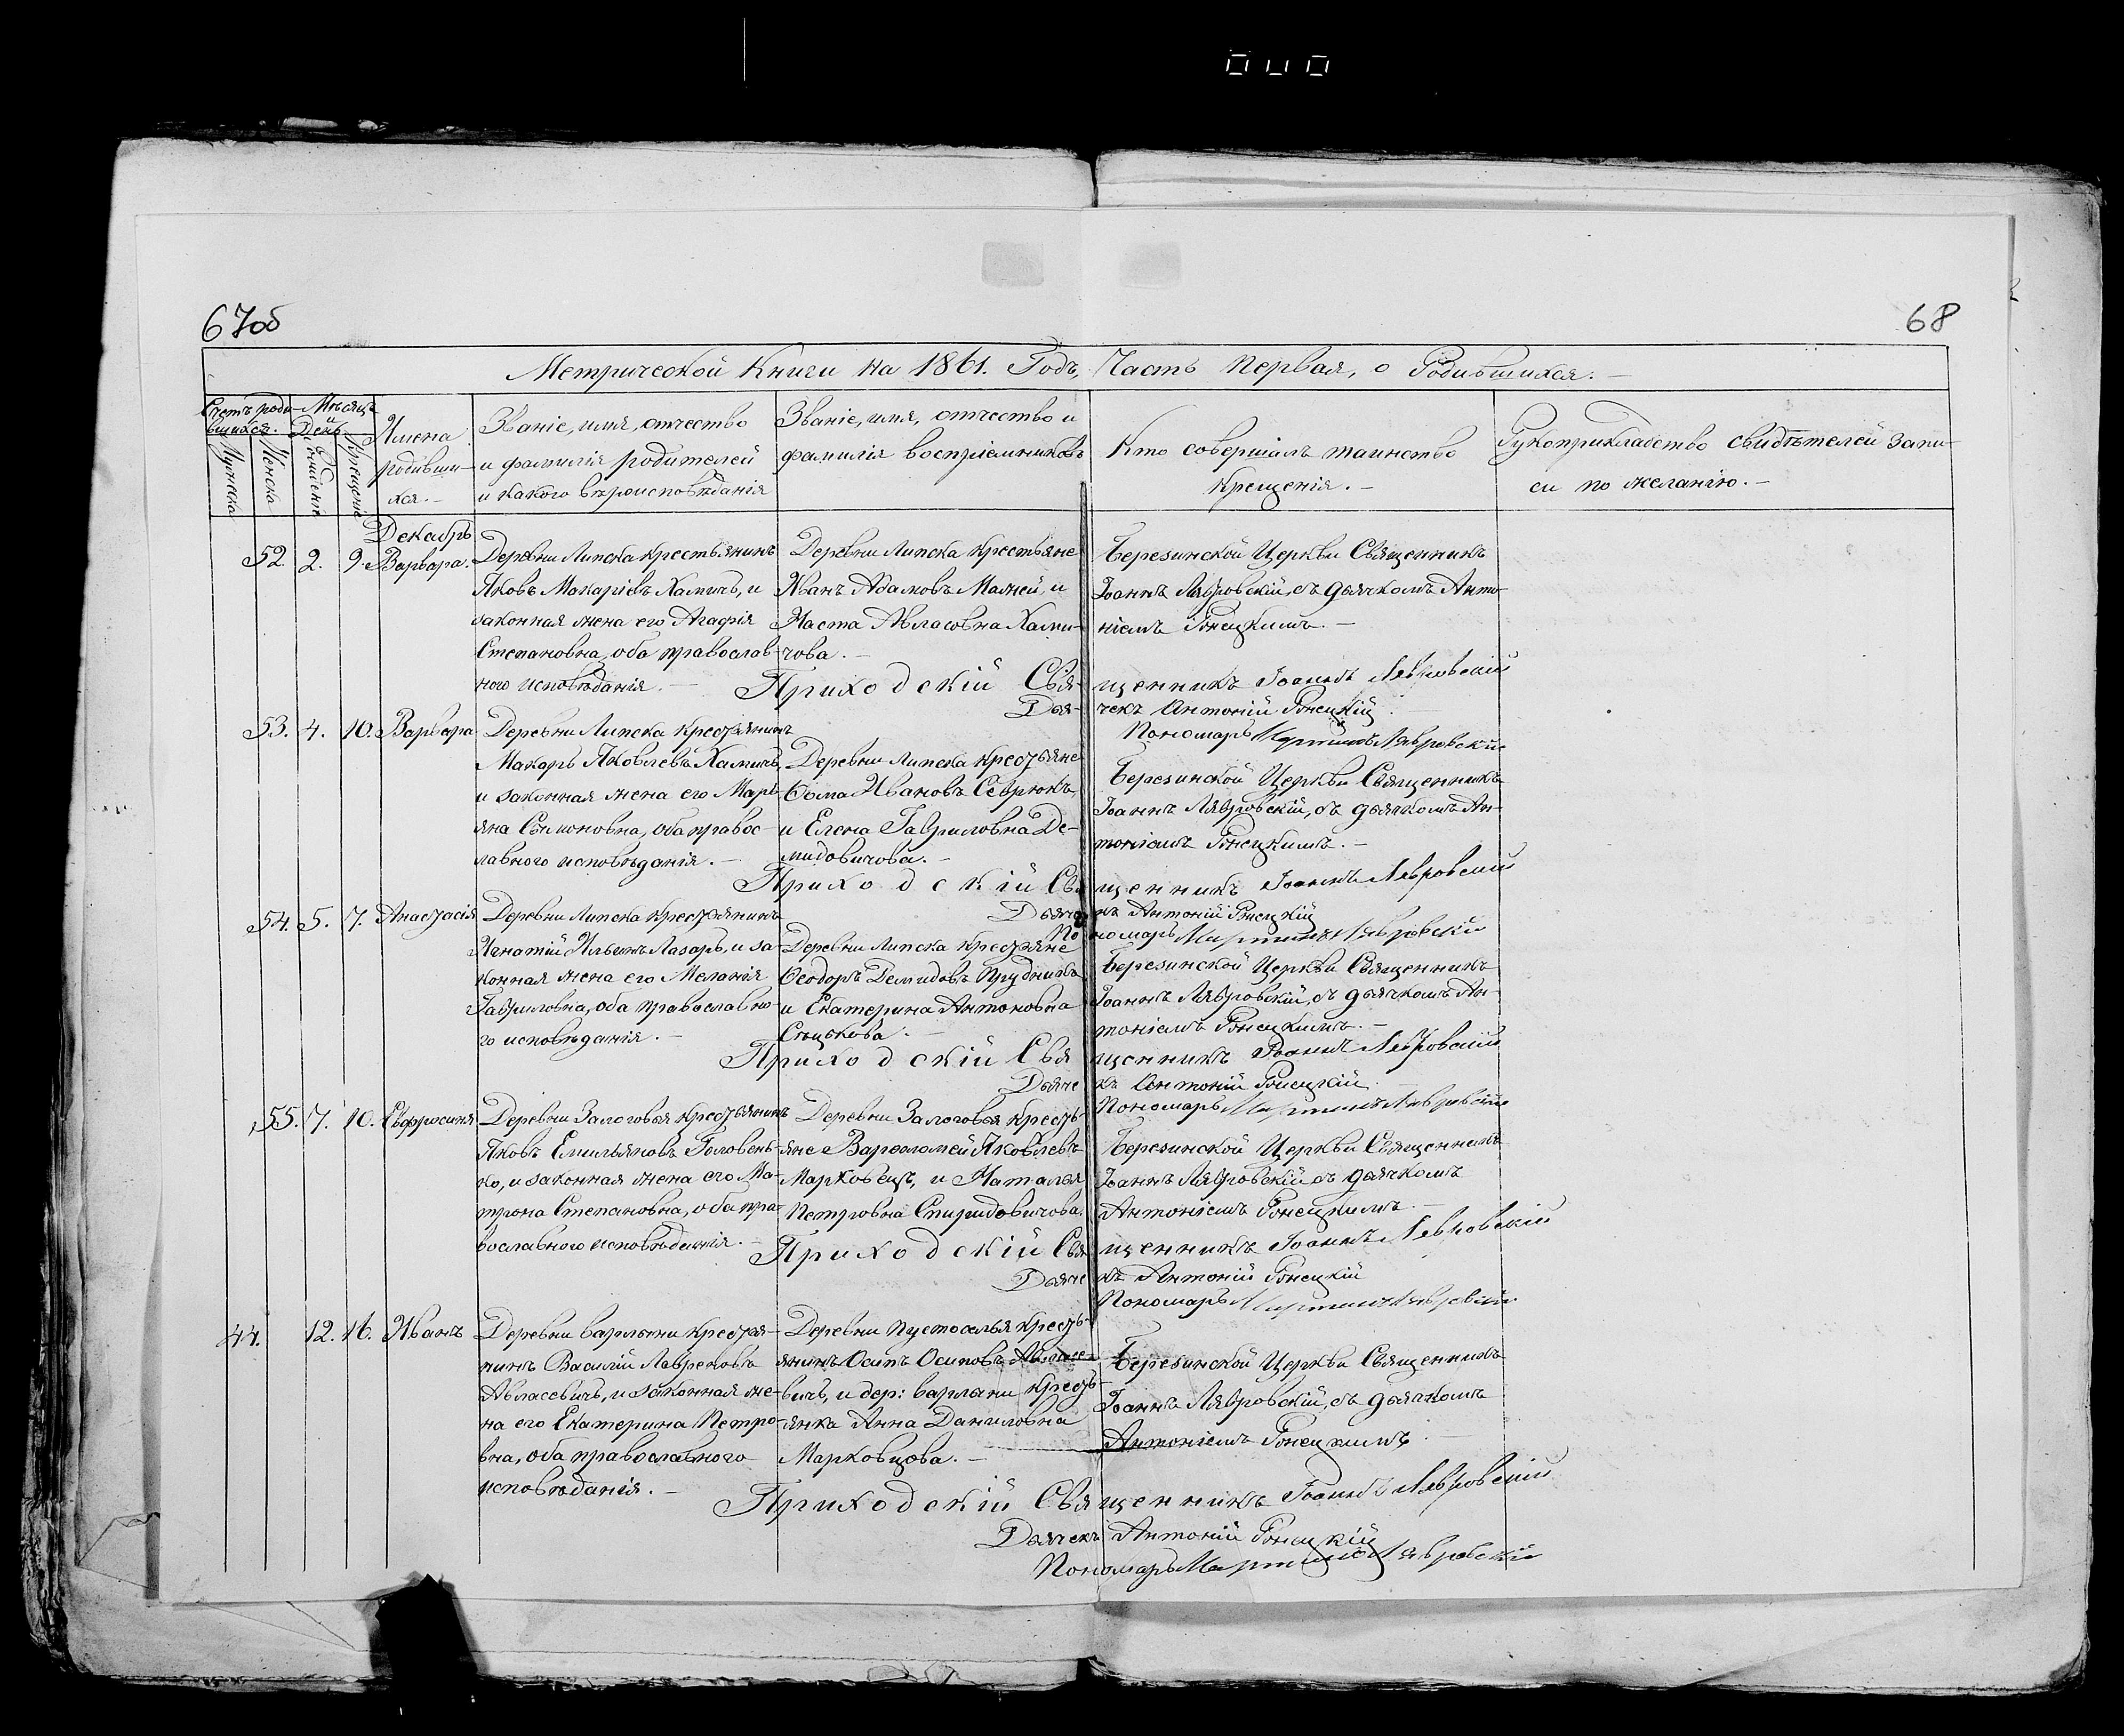 67об
68
Метрической Книги на 1861. Годъ, Часть первая, о Родившихся.
Счетъ роди-
вшихся.
Мѣсяцъ
и
День
Мужеска
Женска
рожденіе
крещеніе
Имена
родивши-
хся.
Званіе, имя, отчество
и фамилія родителей
и какого вѣроисповѣданія
Званіе, имя, отчество и
фамилія воспріемниковъ
Кто совершалъ таинство
крещенія.
Рукоприкладство свидѣтелей запи-
си по желанію.
Декабрь
52. 2. 9. Варвара.
Деревни Липска крестьянинъ
Яковъ Макаріевъ Хамичъ, и
законная жена его Агафія
Степановна, оба православ-
ного исповѣданія.
Деревни Липска крестьяне
Иванъ Адамовъ Мажей, и
Наста Авласовна Хами-
чова.
Березинской Церкви Священникъ
Іоаннъ Лявровскій, съ дьячкомъ Анто-
ніемъ Ронецкимъ.
Приходскій Священникъ Іоаннъ Лавровскій
Дьячекъ Антоній Ронецкій
Пономарь Мартинъ Лявровскій
53. 4. 10. Варвара
Деревни Липска крестьянинъ
Макаръ Яковлевъ Хамичъ,
и законная жена его Марь-
яна Симоновна, оба правос-
лавного исповѣданія.
Деревни Липска крестьяне
Ѳома Ивановъ Севрюкъ,
и Елена Гавриловна Де-
мидовичова.
Березинской Церкви Священникъ
Іоаннъ Лявровскій, съ дьячкомъ Ан-
тоніемъ Ронецкимъ.
Приходскій Священникъ Іоаннъ Лавровскій
Дьячекъ Антоній Ронецкій
Пономарь Мартинъ Лявровскій
54. 5. 7. Анастасія
Деревни Липска крестьянинъ
Игнатій Ильинъ Лазаръ, и за-
конная жена его Меланія
Гавриловна, оба православно-
го исповѣданія.
Деревни Липска крестьяне
Ѳеодоръ Демидовъ Прудникъ
и Екатерина Антоновна
Сѣцькова.
Березинской Церкви Священникъ
Іоаннъ Лявровскій, съ дьячкомъ Ан-
тоніемъ Ронецкимъ.
Приходскій Священникъ Іоаннъ Лавровскій
Дьячекъ Антоній Ронецкій
Пономарь Мартинъ Лявровскій
55. 7. 10. Евфросинія
Деревни Залоговья крестьянинъ
Яковъ Емильяновъ Головень-
ко, и законная жена его Ма-
трона Степановна, оба пра-
вославного исповѣданія.
Деревни Залоговья кресть-
яне Варѳоломей Яковлевъ
Марковецъ, и Наталья
Петровна Спиридовичова.
Березинской Церкви Священникъ
Іоаннъ Лявровскій съ дьячкомъ
Антоніемъ Ронецкимъ.
Приходскій Священникъ Іоаннъ Лавровскій
Дьячекъ Антоній Ронецкій
Пономарь Мартинъ Лявровскій
44. 12. 16. Иванъ
Деревни варлыни крестья-
нинъ Василій Лавреновъ
Авласевичъ, и законная же-
на его Екатерина Петро-
вна, оба православного
исповѣданія.
Деревни Пустоселья кресть-
янинъ Осипъ Осиповъ Авласе-
вичъ, и дер: варлыни кресть-
янка Анна Даниловна
Марковцова.
Березинской Церкви Священникъ
Іоаннъ Лявровскій, съ дьячкомъ
Антоніемъ Ронецкимъ
Приходскій Священникъ Іоаннъ Лавровскій
Дьячекъ Антоній Ронецкій
Пономарь Мартинъ Лявровскій